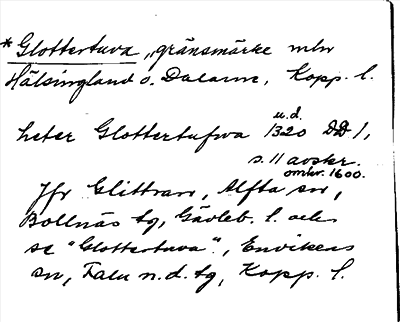 *Glottertuva, „gränsmärke mln
Hälsingland o. Dalarne, Kopp. l.
heter Glottertufwa 1320 u.d. DD 1,
s. 11 avskr.
omkr. 1600.
Jfr Glittran, Alfta sn,
Bollnäs tg, Gävleb. l. och
se "Glottertuva", Envikens
sn, Falu n.d. tg, Kopp. l.